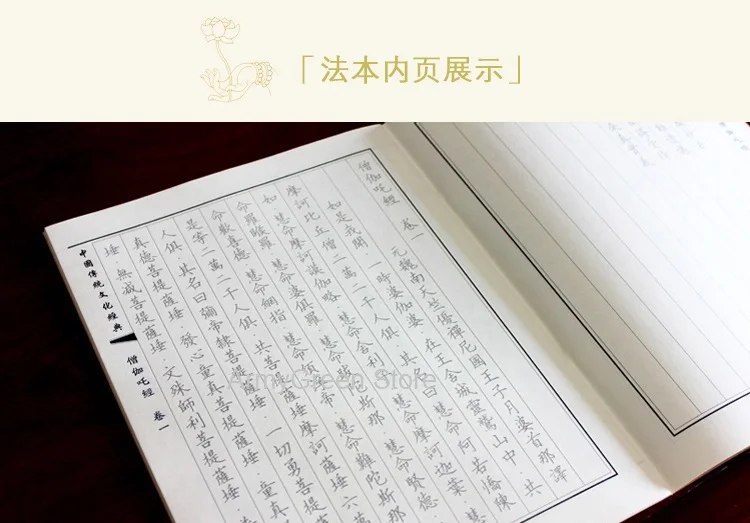 「法本内页展示」
僧伽吒經 卷一
元魏南天竺優禪尼國王子月婆首那譯
如是我聞．一時婆伽婆．在王舍城靈鷲山中．共
摩訶比丘僧二萬二千人俱．其名曰．慧命阿若憍陳
如．慧命摩訶謨伽略．慧命舍利．慧命摩訶迦葉．慧
命羅睺羅．慧命婆俱羅．慧命斯那．慧命賢德．
命歡喜德．慧命網指．慧命須帝．慧命難陀斯那
是等二萬二千人俱．共菩提薩埵摩訶薩埵六萬
人俱．其名曰彌帝隸菩提薩埵．一切勇菩提
真德菩提薩埵．發心童真菩提薩埵．童真
埵．無減菩提薩埵．文殊師利菩提薩埵．
中國傳統文化經典
僧伽吒經 卷一
ArmyGreen Store